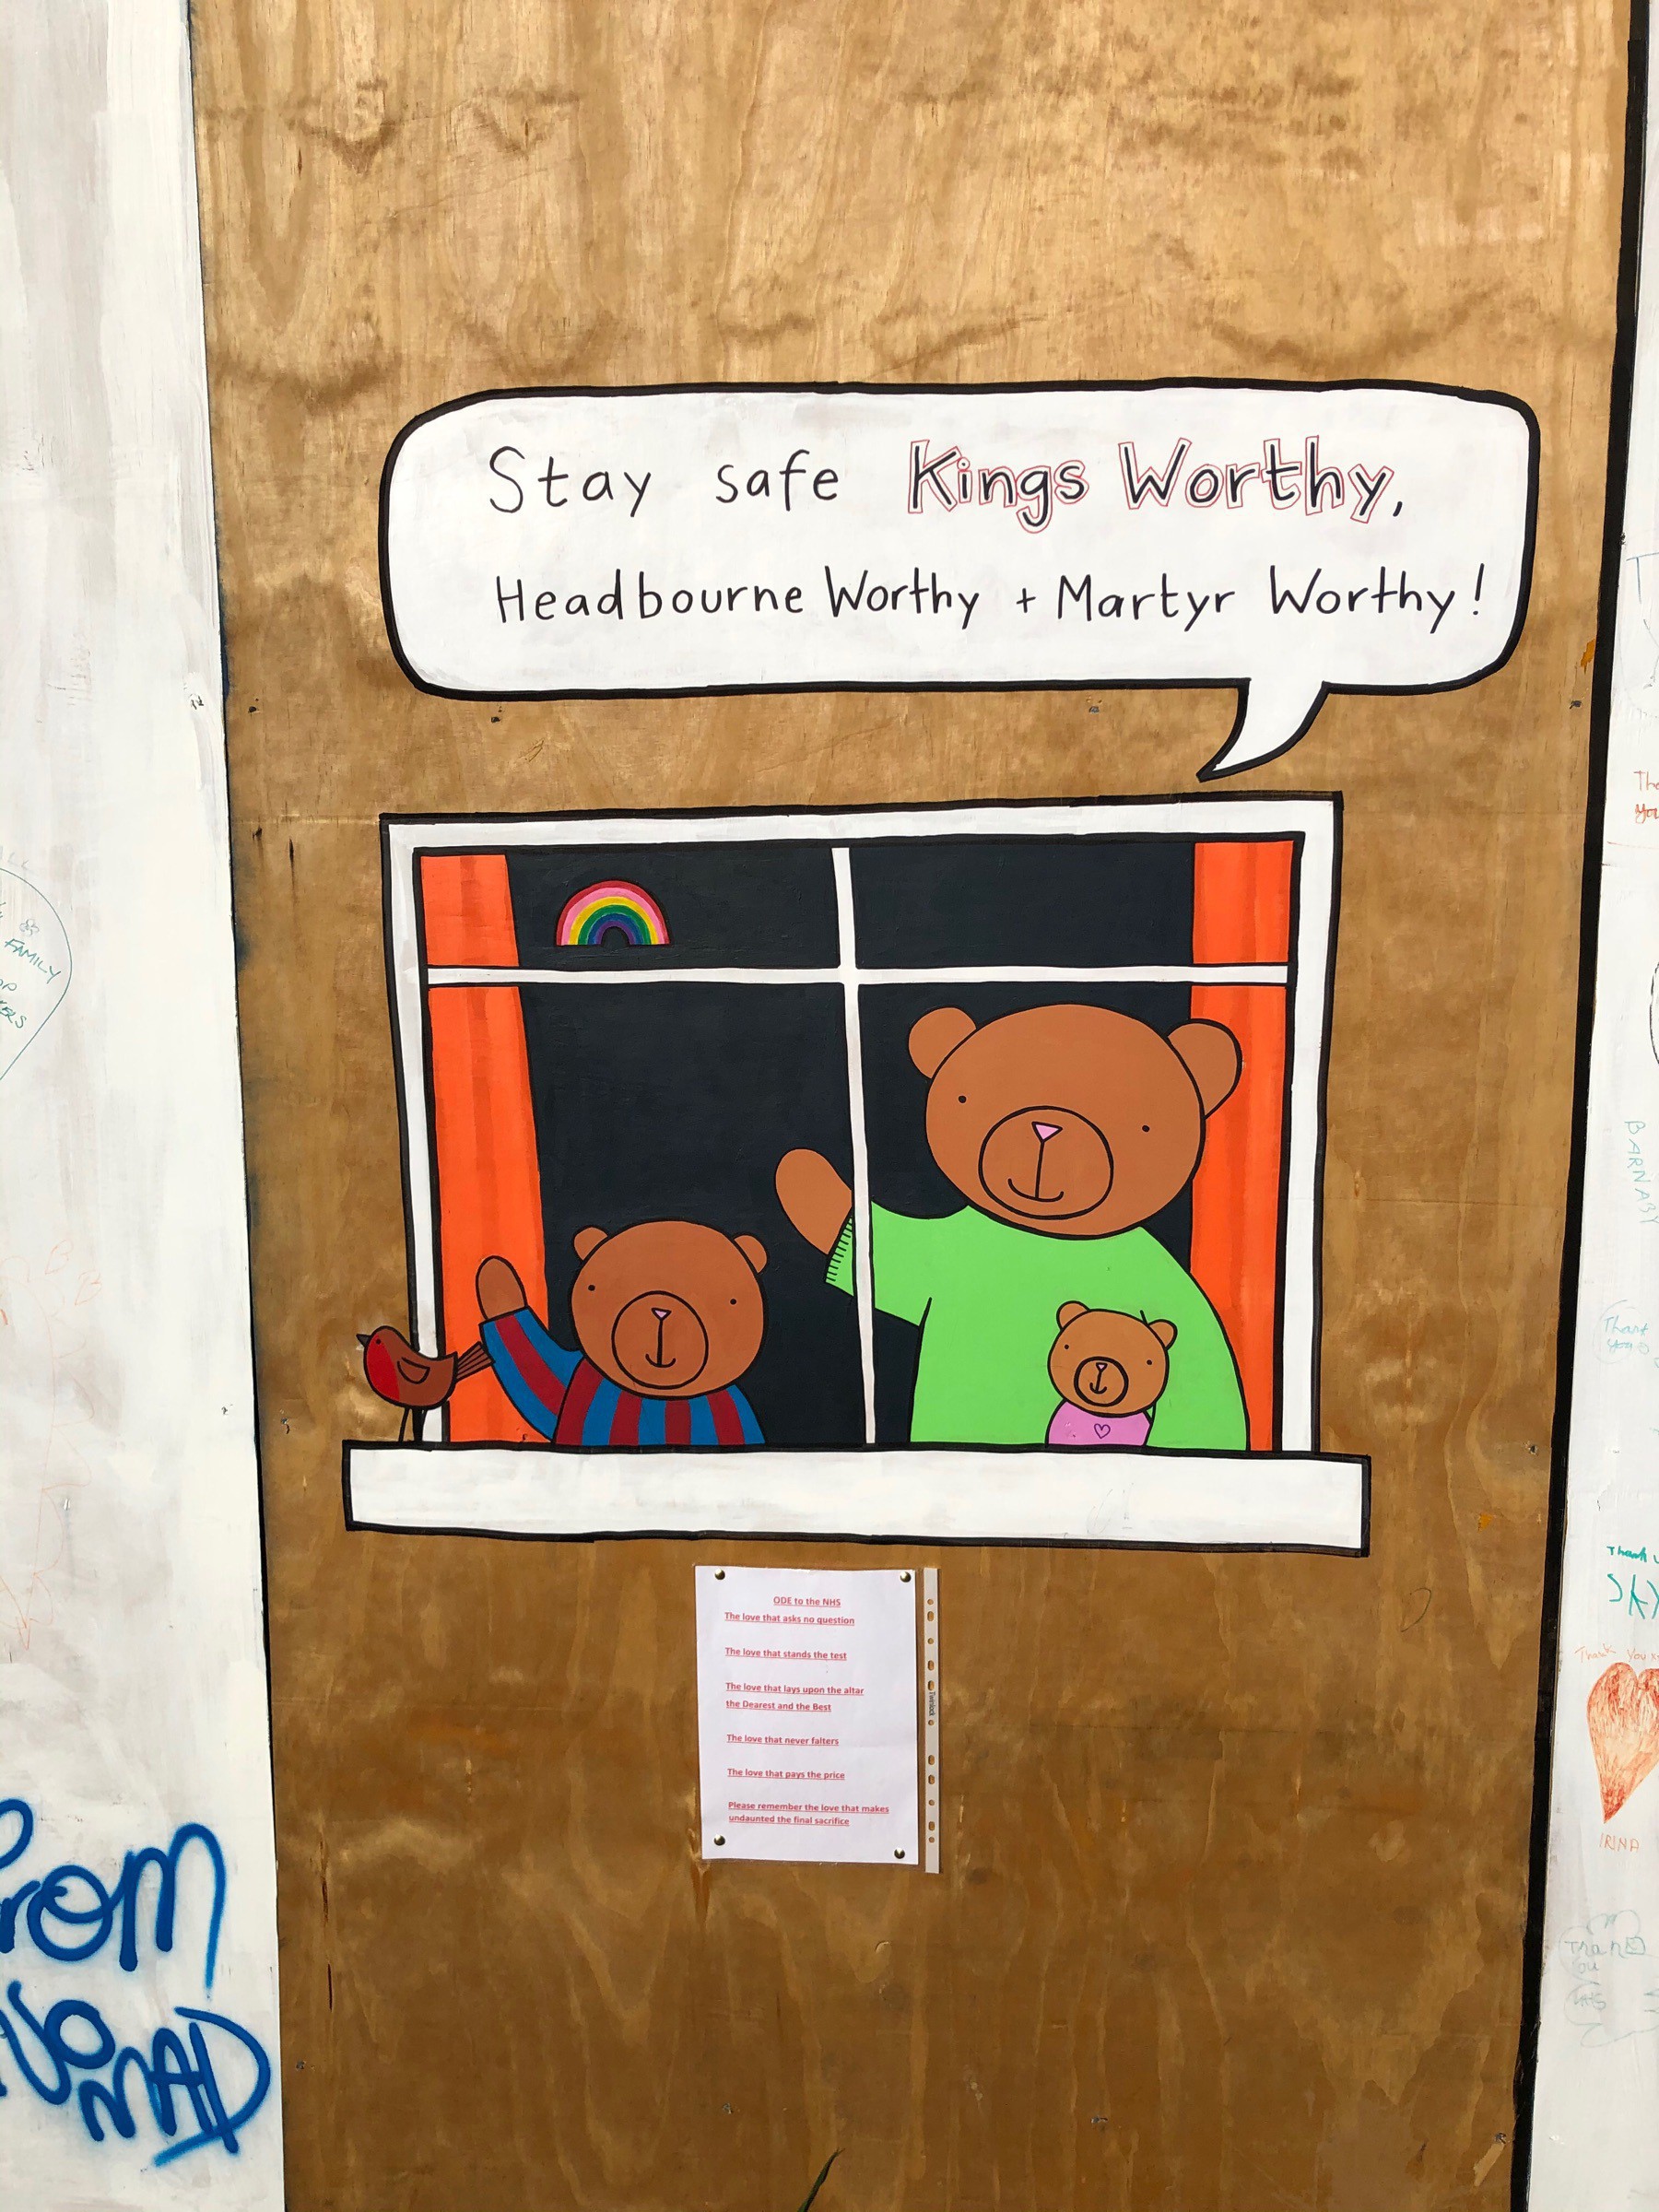 Stay safe Kings Worthy,
Headbourne Worthy + Martyr Worthy!
ODE to the NHS
The love that asks no question
The love that stands the test
The love that lays upon the altar
the Dearest and the Best
The love that never falters
The love that pays the price
Please remember the love that makes
undaunted the final sacrifice
Twinlock
FAMILY
From
NOMAD
BARNABY
Thank
you
Thank
SKY
Thank you
IRINA